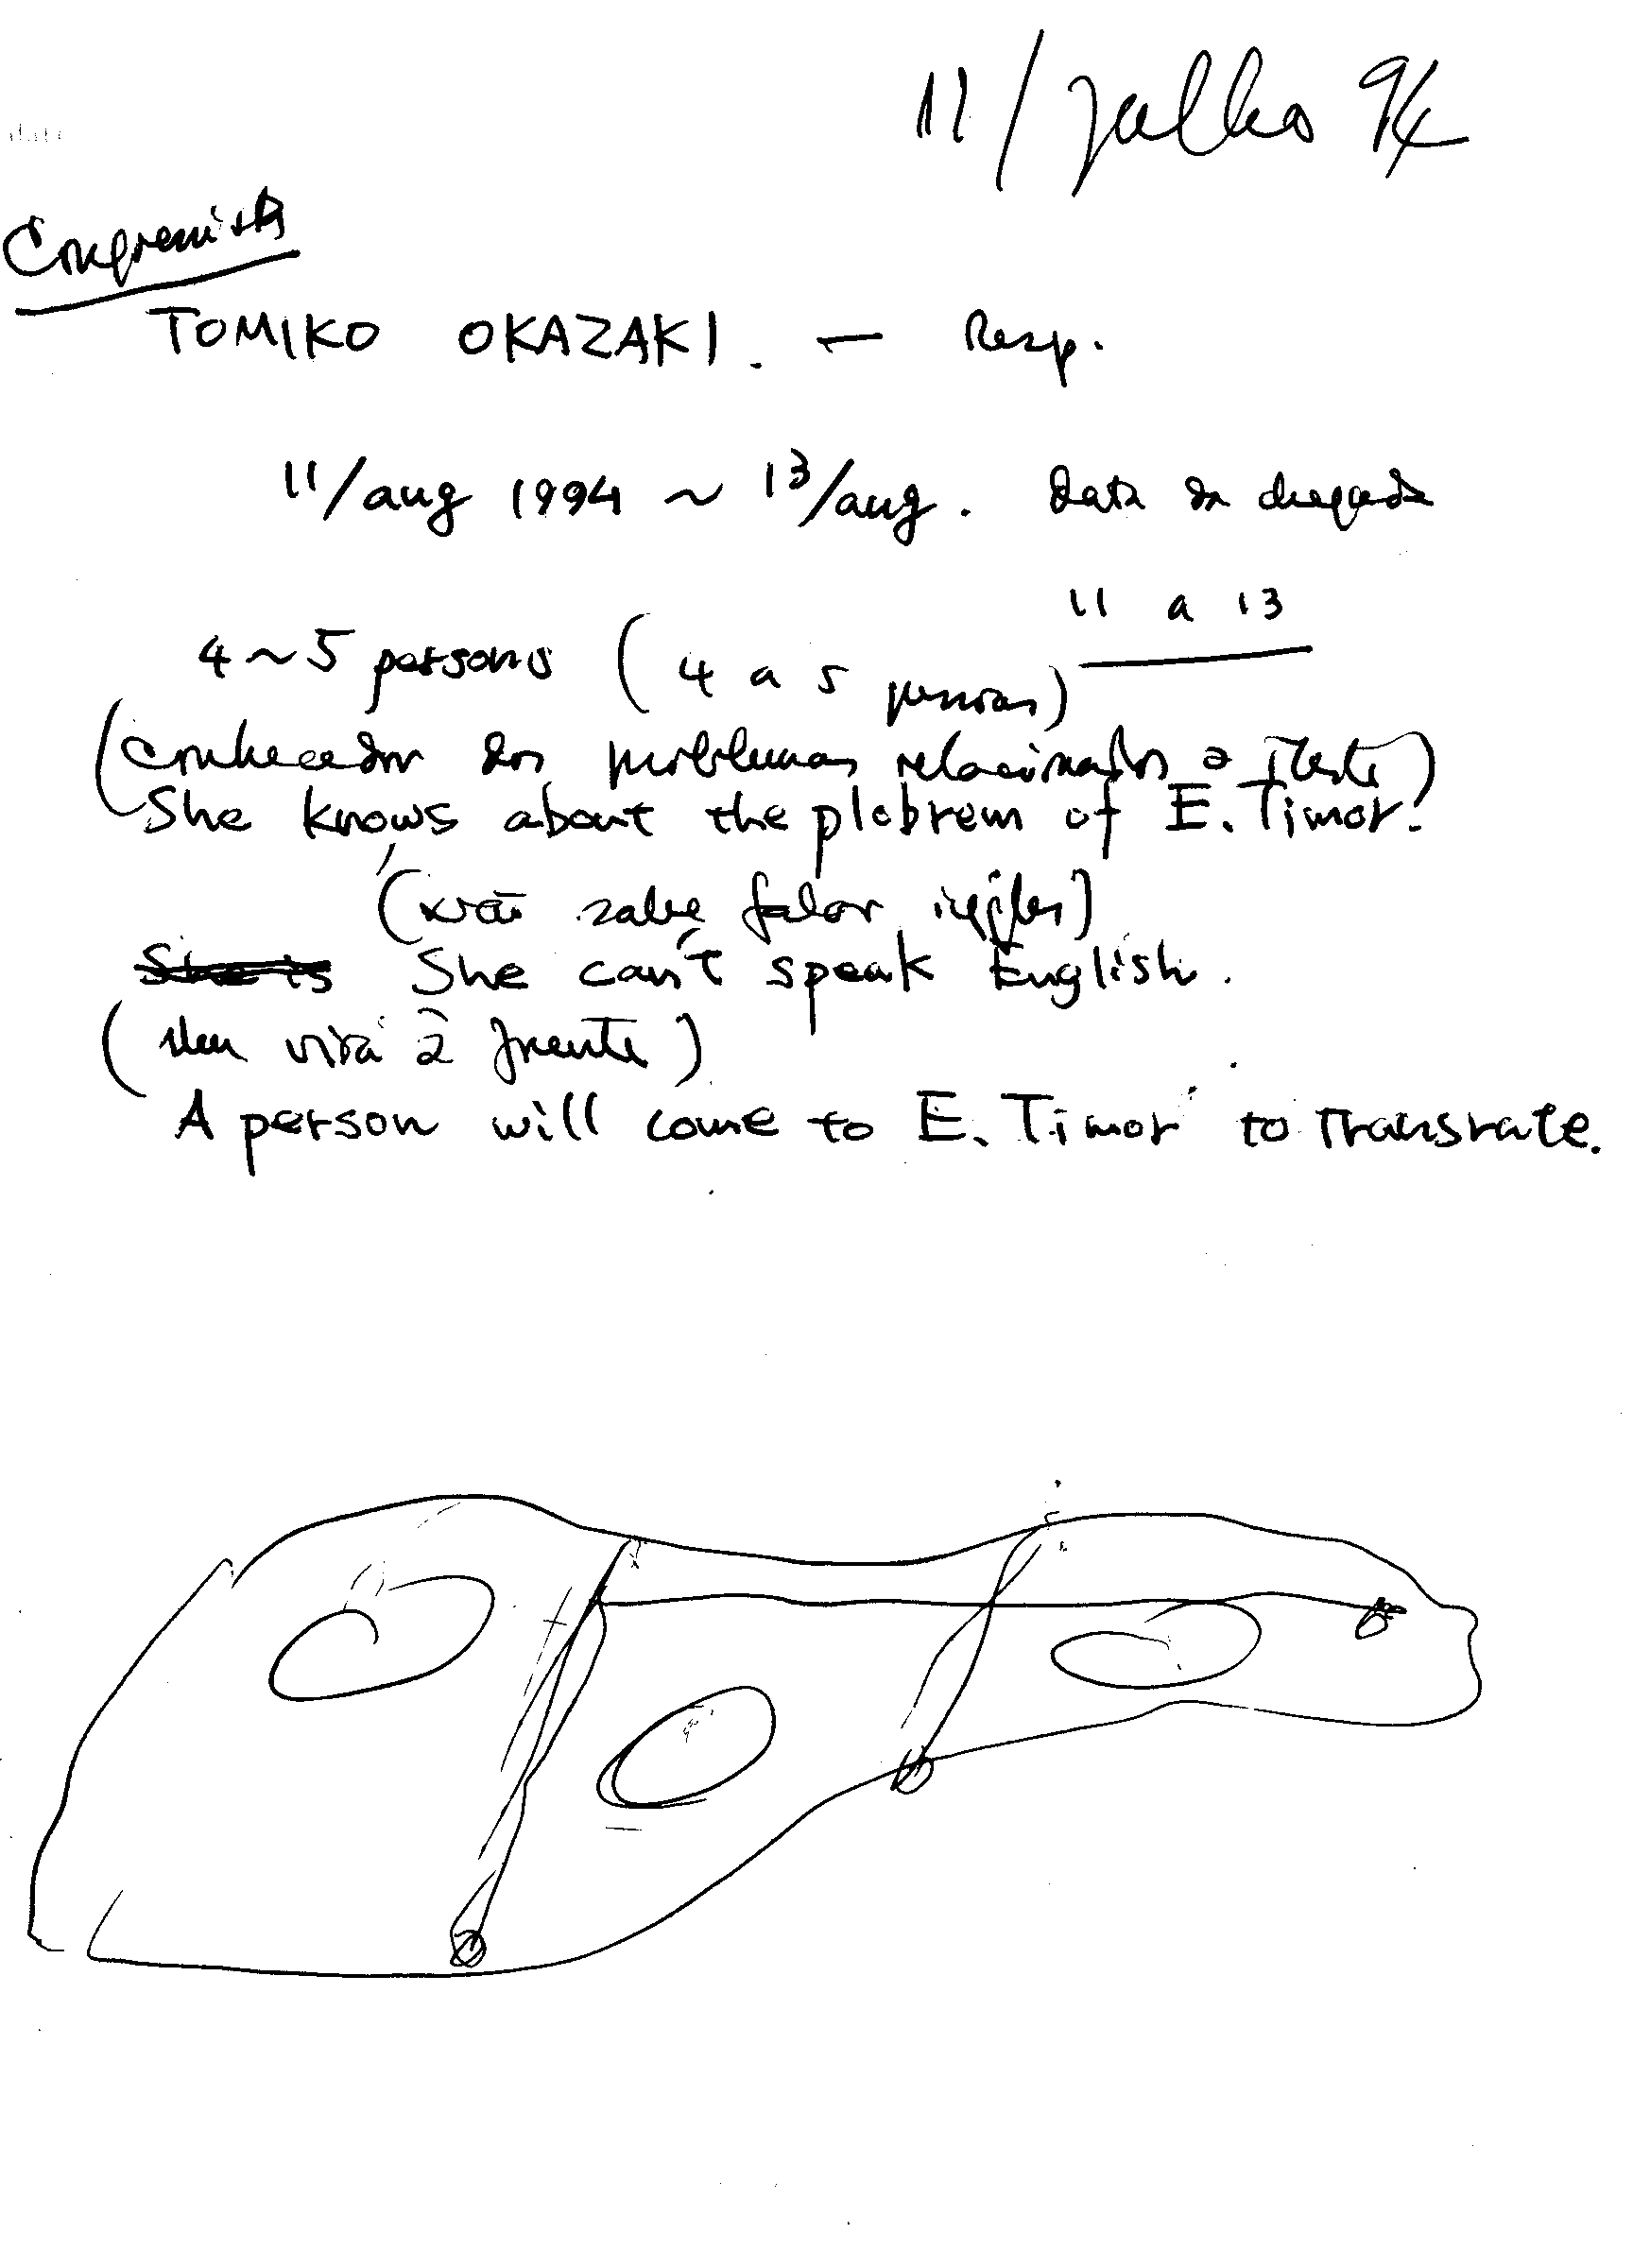 11/Julho 94
date
TOMIKO OKAZAKI. — Resp.
11/aug 1994 ~ 13/aug. data da chegada
11 a 13
4~5 persons (4 a 5 pessoas)
(Conhecedor dos problemas relacionados a Tleste)
She knows about the plobrem of E. Timor.
(não sabe falar inglês)
She is She can't speak English.
( virá à frente)
A person will come to E. Timor to Transrate.